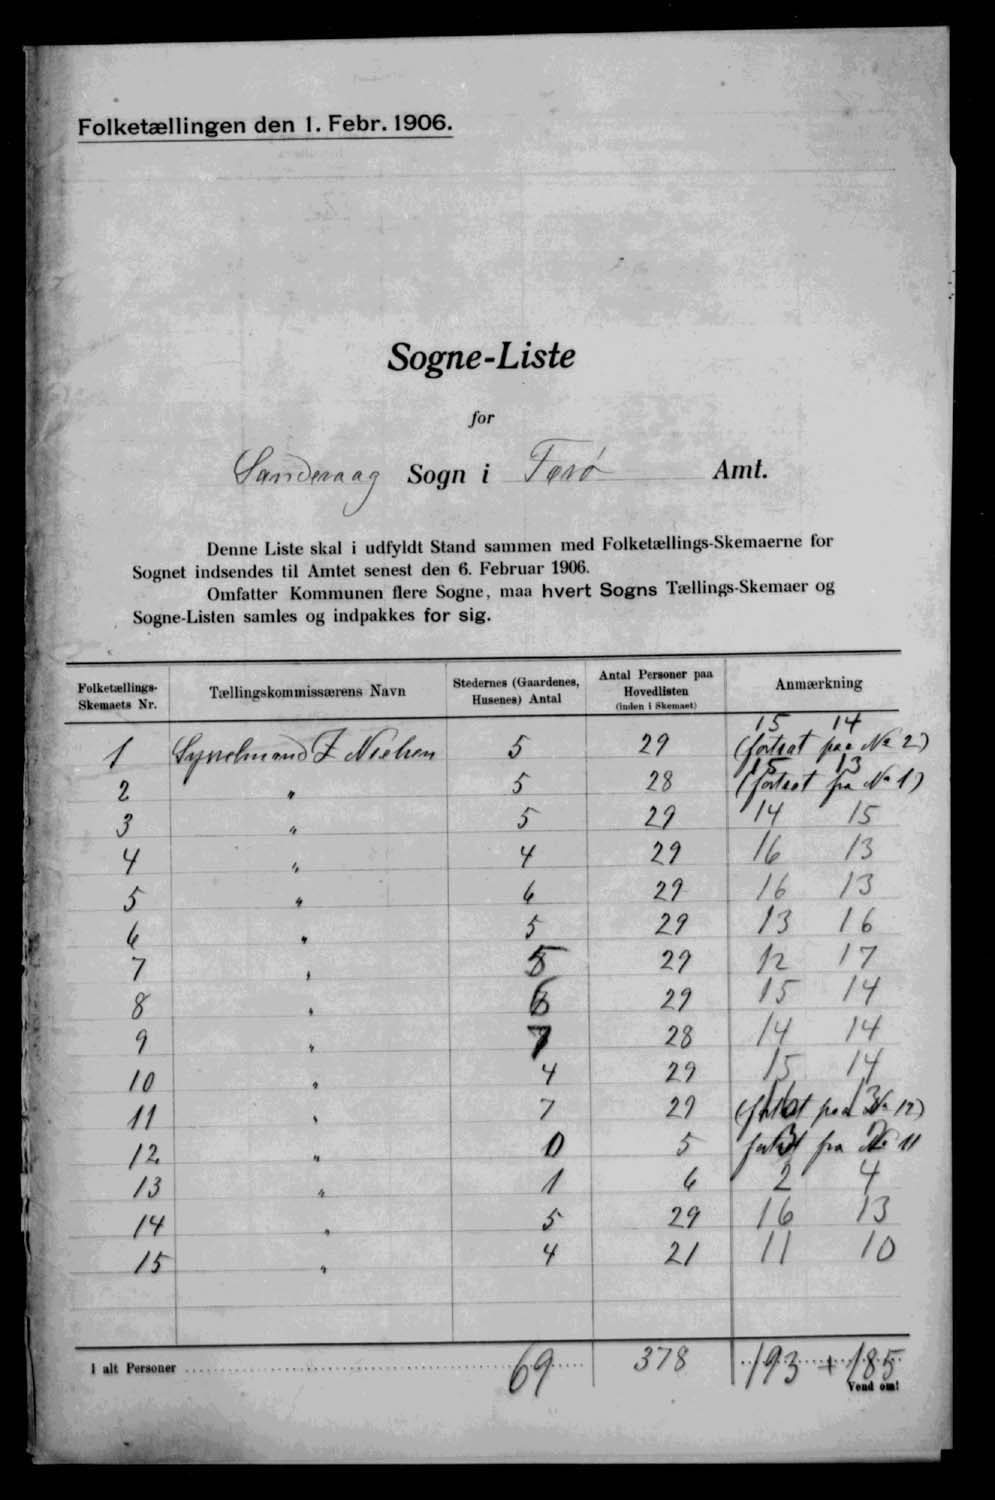 Folketællingen den 1. Febr. 1906.
Sogne-Liste
for
Sandevaag Sogn i Færø Amt.
Denne Liste skal i udfyldt Stand sammen med Folketællings-Skemaerne for
Sognet indsendes til Amtet senest den 6. Februar 1906.
Omfatter Kommunen flere Sogne, maa hvert Sogns Tællings-Skemaer og
Sogne-Listen samles og indpakkes for sig.
Folketællings-Skemaets Nr. Tællingskommissærens Navn Stedernes (Gaardenes, Husenes) Antal Antal Personer paa Hovedlisten (inden i Skemaet) Anmærkning
15 14
1 Nielsen 5 29 (fortsat paa No 2)
15 13
2 " 5 28 (fortsat fra No 1)
3 " 5 29 14 15
4 " 4 29 16 13
5 " 6 29 16 13
6 " 5 29 13 16
7 " 5 29 12 17
8 " 6 29 15 14
9 " 7 28 14 14
10 " 4 29 15 14
11 " 7 29 (fortsat paa No 12) 16 13
12 " 0 5 fortsat fra No 11 3 2
13 " 1 6 2 4
14 " 5 29 16 13
15 " 4 21 11 10
I alt Personer 69 378 193 + 185
Vend om!